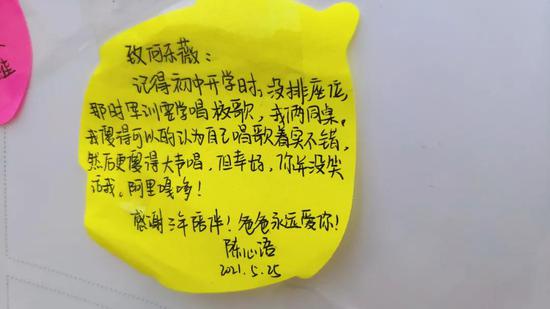 致何乐薇：
记得初中开学时，没排座位，
那时军训要学唱校歌，我俩同桌。
我傻得可以的认为自己唱歌着实不错，
然后更傻得大声唱，但幸好，你并没笑
话我。阿里嘎哆！
感谢三年陪伴！爸爸永远爱你！
陈心语
2021.5.25